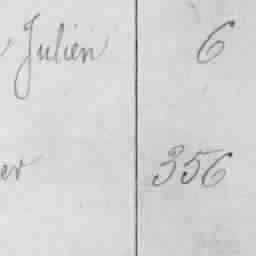 Julien 6
er 356